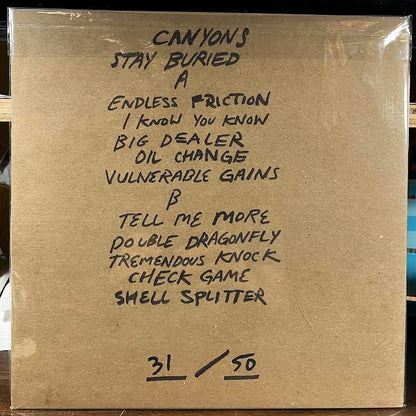 CANYONS
STAY BURIED
A
ENDLESS FRICTION
I KNOW YOU KNOW
BIG DEALER
OIL CHANGE
VULNERABLE GAINS
B
TELL ME MORE
DOUBLE DRAGONFLY
TREMENDOUS KNOCK
CHECK GAME
SHELL SPLITTER
31 / 50